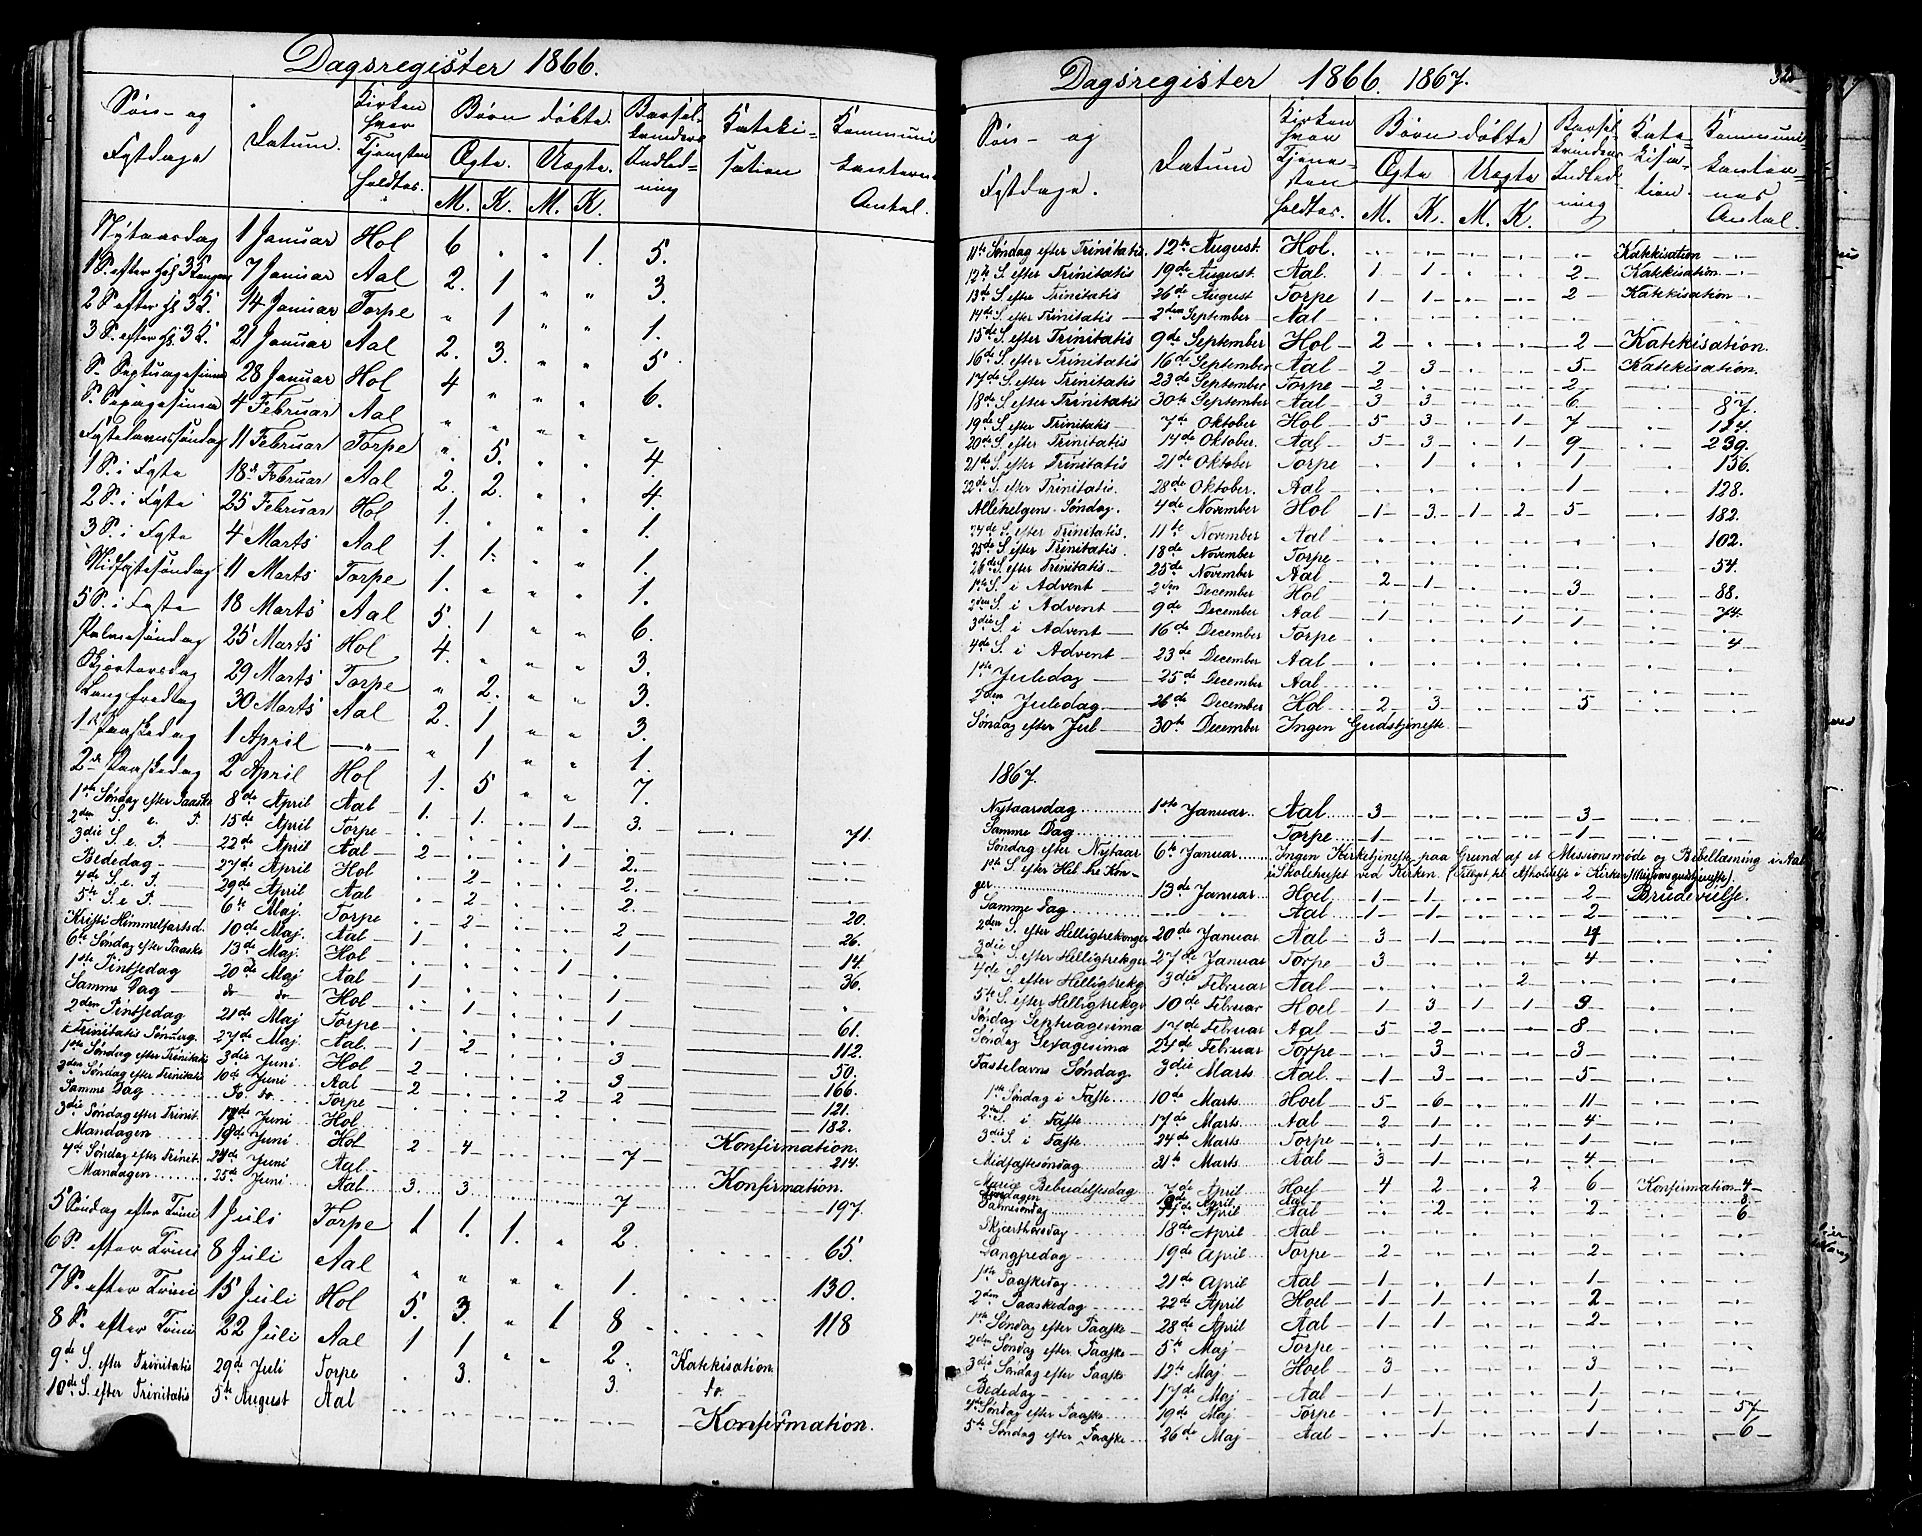 Dagsregister 1866.
Søn- og Festdage | Datum. | Kirken hvor Tjenesten holdtes. | Børn døbte. Ægte. M. K. Uægte. M. K. | Barselkvinders Indledning | Katekisation | Kommunikanternes Antal.
Nytaarsdag 1 Januar Hol 6 " " 1. 5.
1 S. efter Hel. 3 Kongers 7 Januar Aal 2. 1 " " 3.
2 S. efter H. 3 K. 14 Januar Torpe " 1 " " 1.
3 S. efter H. 3 K. 21 Januar Aal 2. 3. " " 5
S. Septuagesima 28 Januar Hol 4 " " " 6.
S. Sexagesima 4 Februar Aal " " " "
Fastelavnssøndag 11 Februar Torpe ". 5. " " 4.
1 S. i Faste 18de Februar Aal 2. 2. " " 4.
2 S. i Faste 25 Februar Hol 1. " " " 1.
3 S. i Faste 4 Marts Aal 1. 1. " " 1.
Midfastesøndag 11 Marts Torpe 1. " " " 1.
5 S. i Faste 18 Marts Aal 5. 1 " " 6.
Palmesøndag 25 Marts Hol 4. " " " 3.
Skjertorsdag 29 Marts Torpe " 2. " " 3.
Langfredag 30 Marts Aal 2. 1 " " 3.
1ste Paaskedag 1 April — " — " 1 " " 1.
2den Paaskedag 2 April Hol 1. 5 " " 7.
1ste Søndag efter Paaske 8de April Aal 1. 1. . 1 3. 71.
2den S. e. P. 15de April Torpe
3die S. e. P. 22de April Aal 2 . . 1 2.
Bededag 27de April Hol . 2 . . 2.
4de S. e. P. 29de April Aal . 2 . . 2.
5te S. e. P. 6te Maj. Torpe . 2 . . 2 20.
Kristi Himmelfartsd. 10de Maj. Aal 1 . . . 1 26.
6te Søndag efter Paaske 13de Maj. Hol . . . 1 . 14.
1ste Pintsedag 20de Maj Aal 1 . . . 1 36.
Samme Dag do do Hol . 1 . . 1
2den Pintsedag 21de Maj Torpe 61.
Trinitatis Søndag. 27de Maj. Aal. 1 2 . . 3 112.
1ste Søndag efter Trinitatis 3die Juni. Hol 2 . . . 3 50.
2den Søndag efter Trinitatis 10de Juni Aal 2 . . 2 2 166.
Samme Dag do do. Torpe 121.
3die Søndag efter Trinit. 17de Juni Hol 182.
Mandagen 18de Juni Hol 2 4 . . 7 Konfirmation.
4de Søndag efter Trinit. 24de Juni Aal 214.
Mandagen 25de Juni Aal 3. 3. . . 7 Konfirmation. 197.
5 Søndag efter Trini 1 Juli Torpe 1 1. 1. " 2. 65.
6 S. efter Trini 8 Juli Aal " " " " 1. 130.
7 S. efter Trini 15 Juli Hol 5. 3. " 1 8 118
8 S. efter Trini 22 Juli Aal 1 1 " " 2. Katekisation.
9de S. efter Trinitatis 29de Juli Torpe . 3. . . 3. do.
10de S. efter Trinitatis 5te August Aal — Konfirmation.
Dagsregister 1866. 1867.
Søn- og Festdage. | Datum | Kirken hvor Tjenesten holdtes. | Børn døbte Ægte M. K. Uægte M. K. | Barselkvinders Indledning | Katekisation. | Kommunikanternes Antal.
11te Søndag efter Trinitatis 12te August. Hol. Katekisation
12te S. efter Trinitatis 19de August. Aal. 1 1 . . 2 Katekisation
13de S. efter Trinitatis 26de August Torpe 1 1 . . 2 Katekisation
14de S. efter Trinitatis 2den September Aal
15de S. efter Trinitatis 9de September Hol 2 . . . 2 Katekisation.
16de S. efter Trinitatis 16de September Aal 2 3 . . 5 Katekisation.
17de S. efter Trinitatis 23de September Torpe 2 . . . 2
18de S. efter Trinitatis 30te September Aal 3 3 . . 6 87.
19de S. efter Trinitatis 7de Oktober Hol 5 3 . 1 7 127.
20de S. efter Trinitatis 14de Oktober. Aal 5 3 . 1 9 239.
21de S. efter Trinitatis 21de Oktober Torpe . 1 . . 1 136.
22de S. efter Trinitatis. 28de Oktober. Aal . . . . 1 128.
Allehelgens Søndag. 4de November Hol 1 3 1 2 5 182.
24de S. efter Trinitatis. 11te November Aal 102.
25de S. efter Trinitatis. 18de November Torpe 54.
26de S. efter Trinitatis 25de November Aal 2 1 . . 3 88.
1ste S. i Advent 2den December Hol 74.
2den S. i Advent 9de December Aal 1 . . 1 1
3die S. i Advent 16de December Torpe 4
4de S. i Advent 23de December Aal
1ste Juledag 25de December Aal
2den Juledag 26de December Hol 2 3 . . 5
Søndag efter Jul 30te December Ingen Gudstjeneste
1867.
Nytaarsdag 1ste Januar Aal 3 . . . 3
Samme Dag Torpe 1 . . . 1
Søndag efter Nytaar 6te Januar Ingen Kirketjeneste paa Grund af et Missionsmøde og Bibellæsning i Aal
i Skolehuset ved Kirken. (Tilligt til Afholdelse i Kirken Missionsgudstjeneste).
1ste S. efter Hel. tre Konger 13de Januar Hoel 1 1 . . 2 Brudevielse.
Samme Dag Aal 1 1 . . 2
2den S. efter Helligtrekonger 20de Januar Aal 3 1 . . 4
3die S. efter Helligtrekger 27de Januar Torpe 3 . . . 4
4de S. efter Helligtrekg 3die Februar Aal . . . 2
5te S. efter Helligtrekgr 10de Februar Hoel 1 3 1 1 9
Søndag Septuagesima 17de Februar Aal 5 2 . . 8
Søndag Sexagesima 24de Februar Torpe . 3 . . 3
Fastelavns Søndag 3die Marts Aal 1 3 . . 5
1ste Søndag i Faste 10de Marts Hoel 5 6 . . 11
2den S. i Faste 17de Marts Aal 2 1 . . 4
3die S. i Faste 24de Marts Torpe . 1 . . 1
Midfastesøndag 31te Marts Aal 3 1 . . 4
Mariæ Bebudelsesdag 7de April Hoel 4 2 . 2 6 Konfirmation 4
Palmesøndag April Aal . 2 . . 2 6
Skjærthorsdag 18de April Aal
Langfredag 19de April Torpe 2 . . . 2
1ste Paaskedag 21de April Aal 1 . 1 . 1
2den Paaskedag 22de April Hoel 1 1 . . 2
1ste Søndag efter Paaske 28de April Aal 1 1 . . 2
2den Søndag efter Paaske 5te Maj Torpe
3die Søndag efter Paaske 12te Maj Hoel 3 . . . 3
Bededag 17de Maj Aal 1 . . . 1
4de Søndag efter Paaske 19de Maj Torpe . 1 . . 1 57
5te Søndag efter Paaske 26de Maj Aal . 1 . . 1 6